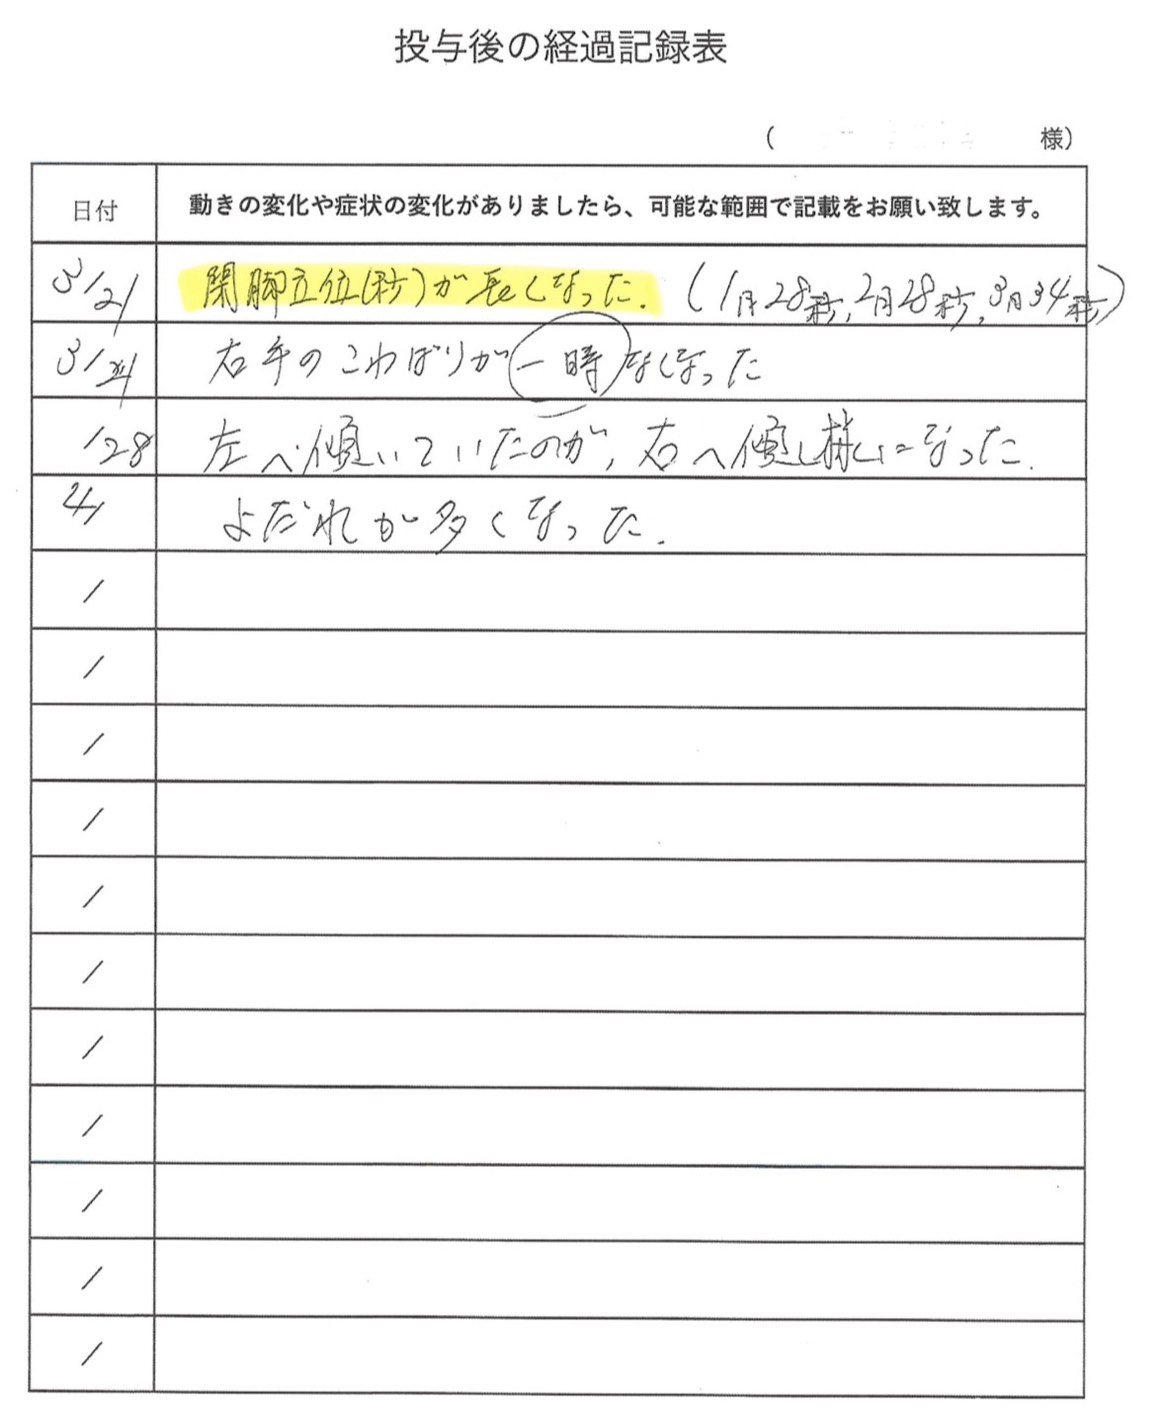 投与後の経過記録表
( 様)
日付 動きの変化や症状の変化がありましたら、可能な範囲で記載をお願い致します。
3/21 閉脚立位(秒)が長くなった. (1月28秒, 2月28秒, 3月34秒)
3/24 右手のこわばりが一時なくなった
/28 左へ傾いていたのが, 右へ傾く様になった.
4/1 よだれが多くなった.
/
/
/
/
/
/
/
/
/
/
/